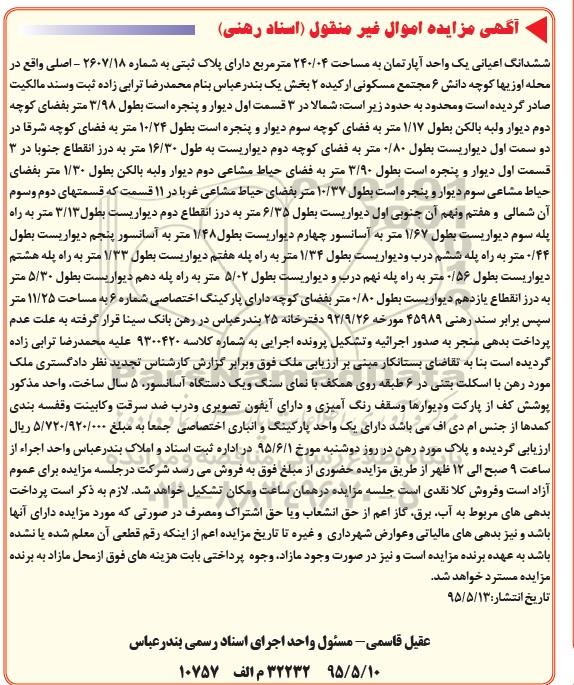 آگهی مزایده اموال غیر منقول (اسناد رهنی)
ششدانگ اعیانی یک واحد آپارتمان به مساحت ۲۴۰/۰۴ مترمربع دارای پلاک ثبتی به شماره ۲۶۰۷/۱۸ - اصلی واقع در
محله اوزیها کوچه دانش ۶ مجتمع مسکونی ارکیده ۲ بخش یک بندرعباس بنام محمدرضا ترابی زاده ثبت وسند مالکیت
صادر گردیده است ومحدود به حدود زیر است: شمالا در ۳ قسمت اول دیوار و پنجره است بطول ۳/۹۸ متر بفضای کوچه
دوم دیوار ولبه بالکن بطول ۱/۱۷ متر به فضای کوچه سوم دیوار و پنجره است بطول ۱۰/۲۴ متر به فضای کوچه شرقا در
دو سمت اول دیوریست بطول ۰/۸۰ متر به فضای کوچه دوم دیواریست به طول ۱۶/۳۰ متر به درز انقطاع جنوبا در ۳
قسمت اول دیوار و پنجره است بطول ۳/۹۰ متر به فضای حیاط مشاعی دوم دیوار ولبه بالکن بطول ۱/۳۰ متر بفضای
حیاط مشاعی سوم دیوار و پنجره است بطول ۱۰/۳۷ متر بفضای حیاط مشاعی غربا در ۱۱ قسمت که قسمتهای دوم وسوم
آن شمالی و هفتم ونهم آن جنوبی اول دیواریست بطول ۶/۳۵ متر به درز انقطاع دوم دیواریست بطول ۳/۱۳ متر به راه
پله سوم دیواریست بطول ۱/۶۷ متر به آسانسور چهارم دیواریست بطول ۱/۴۸ متر به آسانسور پنجم دیواریست بطول
۰/۴۴ متر به راه پله ششم درب ودیواریست بطول ۱/۳۴ متر به راه پله هفتم دیواریست بطول ۱/۳۳ متر به راه پله هشتم
دیواریست بطول ۰/۵۶ متر به راه پله نهم درب و دیواریست بطول ۵/۰۲ متر به راه پله دهم دیواریست بطول ۵/۳۰ متر
به درز انقطاع یازدهم دیواریست بطول ۰/۸۰ متر بفضای کوچه دارای پارکینگ اختصاصی شماره ۶ به مساحت ۱۱/۲۵ متر
سپس برابر سند رهنی ۴۵۹۸۹ مورخه ۹۲/۹/۲۶ دفترخانه ۲۵ بندرعباس در رهن بانک سینا قرار گرفته به علت عدم
پرداخت بدهی منجر به صدور اجرائیه وتشکیل پرونده اجرایی به شماره کلاسه ۹۳۰۰۴۲۰ علیه محمدرضا ترابی زاده
گردیده است بنا به تقاضای بستانکار مبنی بر ارزیابی ملک فوق وبرابر گزارش کارشناس تجدید نظر دادگستری ملک
مورد رهن با اسکلت بتنی در ۶ طبقه روی همکف با نمای سنگ ویک دستگاه آسانسور، ۵ سال ساخت، واحد مذکور
پوشش کف از پارکت ودیوارها وسقف رنگ آمیزی و دارای آیفون تصویری ودرب ضد سرقت وکابینت وقفسه بندی
کمدها از جنس ام دی اف می باشد دارای یک واحد پارکینگ و انباری اختصاصی جمعا به مبلغ ۵/۷۲۰/۹۲۰/۰۰۰ ریال
ارزیابی گردیده و پلاک مورد رهن در روز دوشنبه مورخ ۹۵/۶/۱ در اداره ثبت اسناد و املاک بندرعباس واحد اجراء از
ساعت ۹ صبح الی ۱۲ ظهر از طریق مزایده حضوری از مبلغ فوق به فروش می رسد شرکت درجلسه مزایده برای عموم
آزاد است وفروش کلا نقدی است جلسه مزایده درهمان ساعت ومکان تشکیل خواهد شد. لازم به ذکر است پرداخت
بدهی های مربوط به آب، برق، گاز اعم از حق انشعاب ویا حق اشتراک ومصرف در صورتی که مورد مزایده دارای آنها
باشد و نیز بدهی های مالیاتی وعوارض شهرداری و غیره تا تاریخ مزایده اعم از اینکه رقم قطعی آن معلم شده یا نشده
باشد به عهده برنده مزایده است و نیز در صورت وجود مازاد، وجوه پرداختی بابت هزینه های فوق ازمحل مازاد به برنده
مزایده مسترد خواهد شد.
تاریخ انتشار: ۹۵/۵/۱۳
عقیل قاسمی- مسئول واحد اجرای اسناد رسمی بندرعباس
۹۵/۵/۱۰ ۳۲۲۳۲ م الف ۱۰۷۵۷